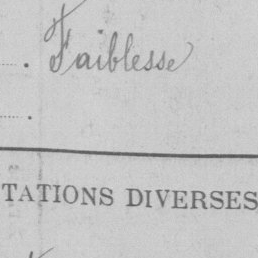 ..... . Faiblesse
..... .
TATIONS DIVERSES